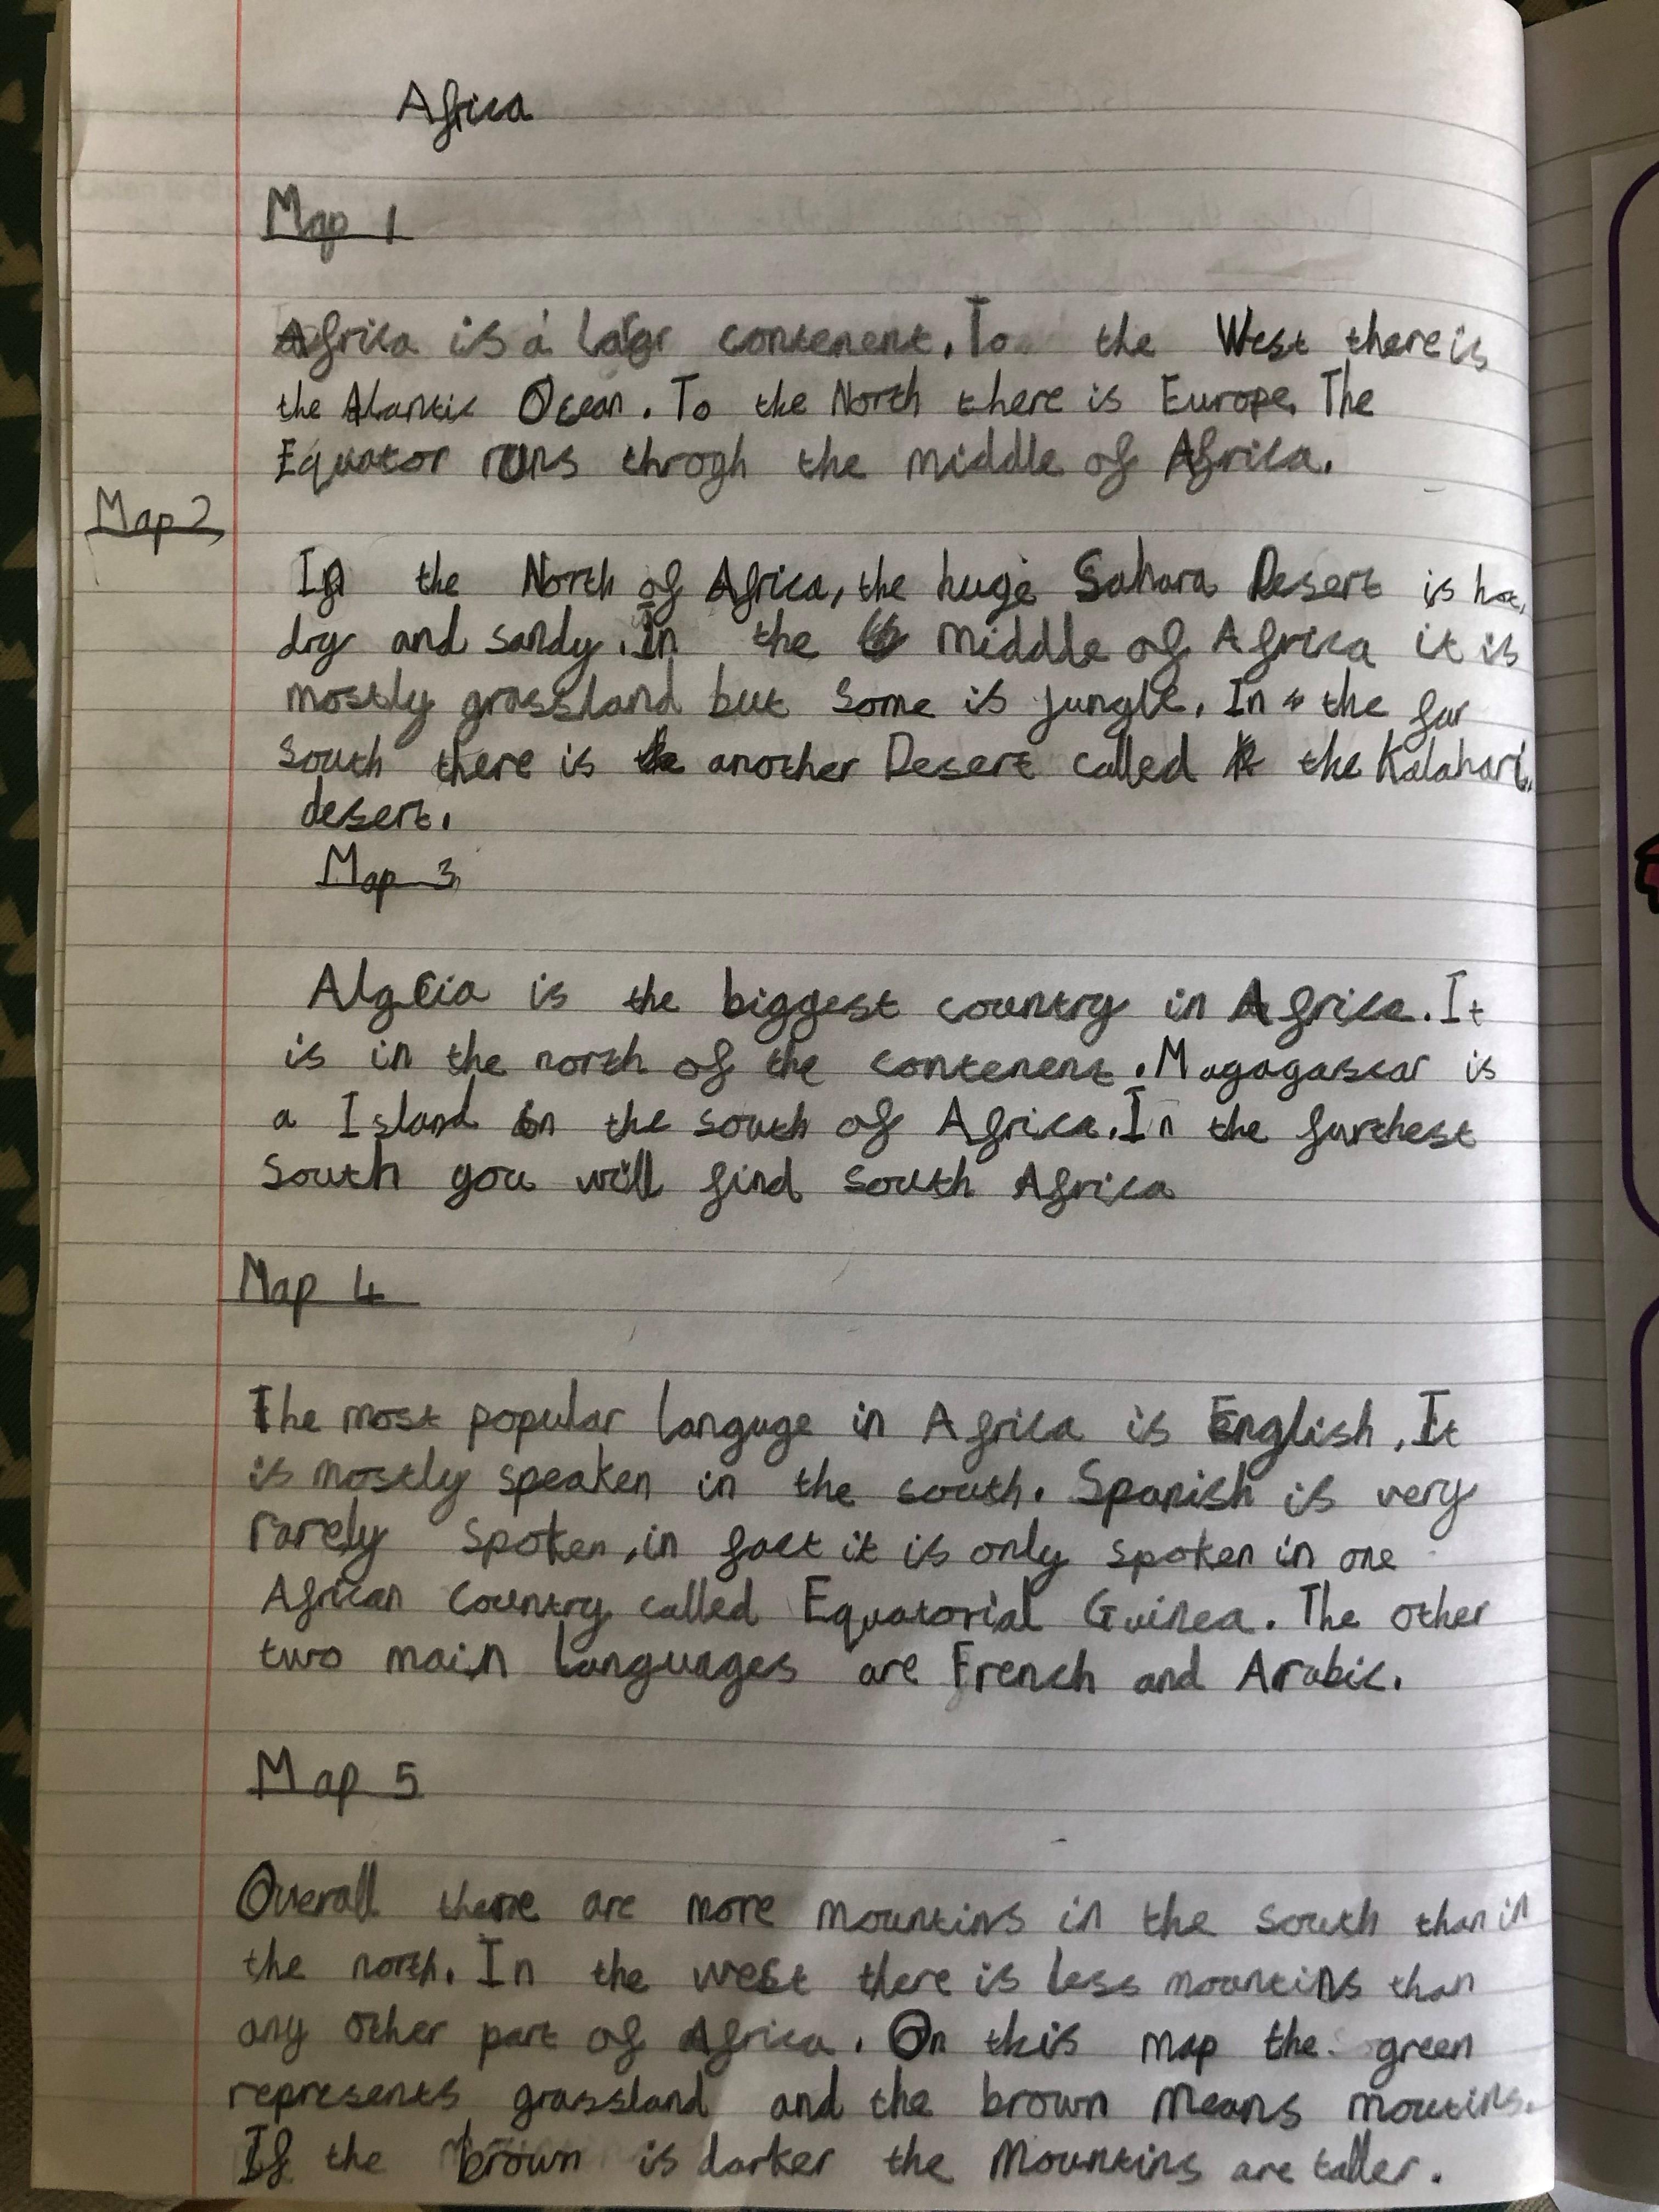 Africa
Map 1
Africa is a contenent. To the West there is
the Atlantic Ocean. To the North there is Europe. The
Equator runs throgh the middle of Africa.
Map 2
In the North of Africa, the huge Sahara Desert is hot,
dry and sandy. In the middle of Africa it is
mostly grassland but some is jungle. In the far
South there is another Desert called the Kalahari
desert.
Map 3
is the biggest country in Africa. It
is in the north of the contenent. Magagascar is
a Island in the south of Africa. In the furthest
South you will find south Africa
Map 4
The most popular languge in Africa is English. It
is mostly speaken in the south. Spanish is very
rarely spoken, in fact it is only spoken in one
African Country called Equatorial Guinea. The other
two main languages are French and Arabic.
Map 5
Overall there are more mountins in the south than in
the north. In the west there is less mountins than
any other part of Africa. On this map the green
represents grassland and the brown means moutins.
If the brown is darker the Mountins are taller.